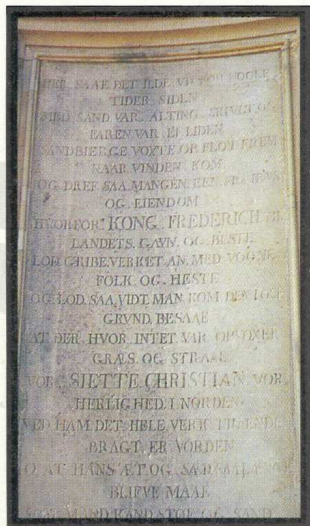 HER SAAE DET ILDE UD FOR NOGLE
TIDER SIDEN
SAND VAR ALTING SKIULT OG
FAREN VAR EI LIDEN
SANDBIERGE VOXTE OP FLOI FREM
NAAR VINDEN KOM
OG DREF SAA MANGEN EEN FRA
OG EIENDOM
HVORFOR KONG FREDERICH
LANDETS GAVN OG BESTE
LOD GRIBE VERKET AN MED VOGNE
FOLK OG HESTE
OG LOD SAA VIDT MAN KOM DEN LØSE
GRUND BESAAE
AT DER HVOR INTET VAR OPVOXER
GRÆS OG STRAAE
VOR SIETTE CHRISTIAN VOR
HERLIGHED I NORDEN
VED HAM DET HELE VERK TIL ENDE
BRAGT ER VORDEN
O AT HANS ÆT OG SÆD SAALÆNGE
BLIFVE MAAE
SOM MAND KAND STØF OG SAND